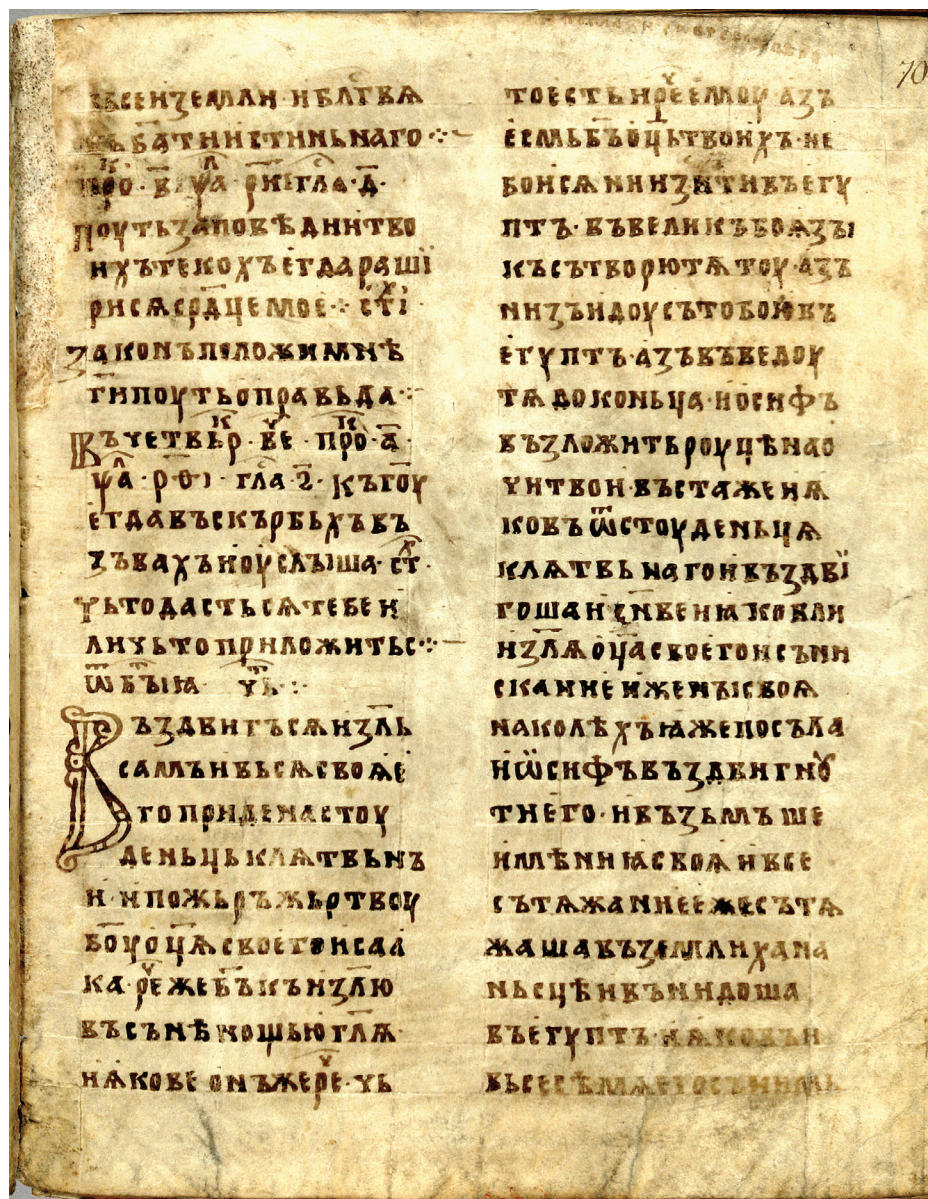 вьсеи земли · и блг҃твѧ
б҃а ти истиньнаго ⁘
про҃к · в҃ · ѱа҃л · рн҃і · гла҃ · д҃ ·
поуть заповѣднии тво
ихъ текохъ егда раші
рисѧ срд҃це мое ⁘ ст҃хі
законъ положи мнѣ
г҃и поуть оправьда ⁘
въ четвьр҃к · ве҃ч · про҃к · а҃ ·
ѱа҃л · рѳ҃і · гла҃с · ꙅ҃ · къ г҃оу
егда въскърбьхъ въ
зъвахъ и оуслыша · ст҃х ·
чьто дасть сѧ тебе и
ли чьто приложитьс ⁘
ѿ бытиꙗ · ч҃ть ⁘
Въздвигъ сѧ из҃ль
самъ и вьсѧ своѩ е
го приде на стоу
деньць клѧтвьнъ
и · и пожьръ жьртвоу
б҃оу оц҃ѧ своего исаа
ка · ре҃ч же б҃ъ къ из҃лю
въ сънѣ нощью гл҃ѧ ·
иѧкове онъ же ре҃ч · чь
то есть и ре҃ч емоу · азъ
есмь б҃ъ оц҃ь твоихъ · не
боисѧ ни изити въ егу
птъ · въ великъ бо ѩзы
къ сътворю тѧ тоу · азъ
низъидоу съ тобою въ
егуптъ · азъ възведоу
тѧ до коньца · иосифъ
възложить роуцѣ на о
чи твои · въста же иѧ
ковъ ѿ стоуденьцѧ
клѧтвьнаго и въздві
гоша и с҃нве иꙗковли
из҃лѧ оц҃а своего и съни
скание и жены своѩ
на колѣхъ ꙗже посъла
иѡсифъ въздвигноу
ти его · и възьмъше
имѣниꙗ своѩ и все
сътѧжание еже сътѧ
жаша въ земли хана
ньсцѣи вънидоша
въ егуптъ · иѧковъ и
вьсе сѣмѧ его съ нимь
70